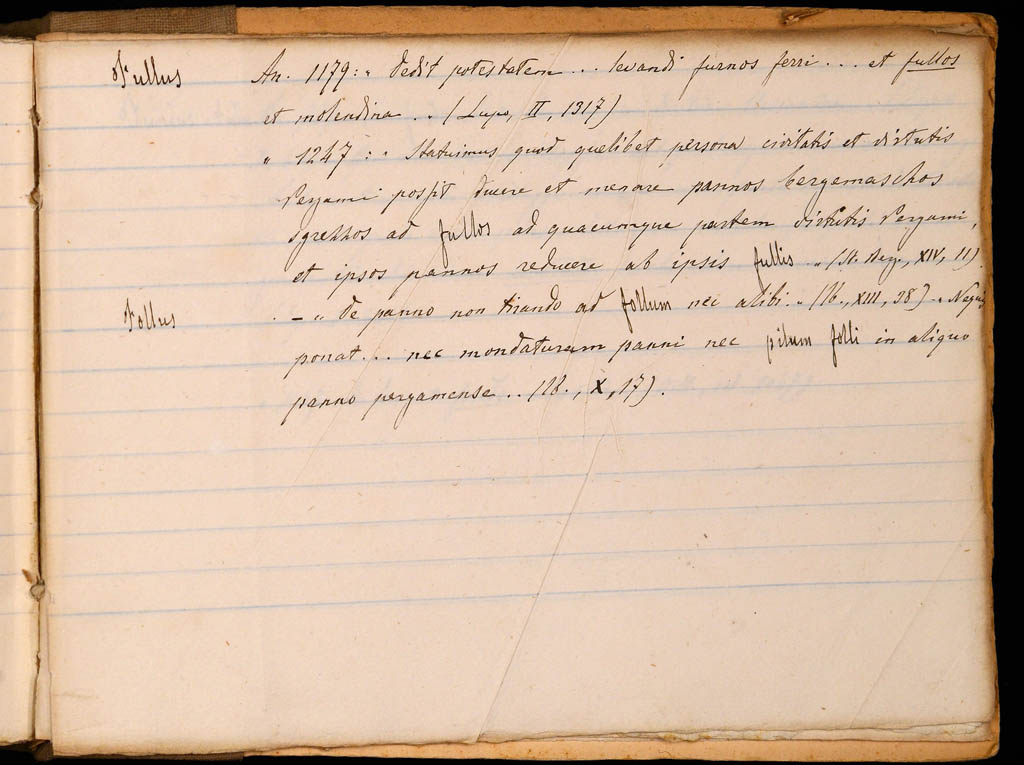 Fullus An. 1179: „ Dedit potestatem... levandi furnos ferri... et fullos
et molendina.. „ (Lupo, II, 1317)
„ 1247: „ Statuimus quod quelibet persona civitatis et virtutis
Pergami possit ducere et menare pannos bergemaschos
sgrezzos ad fullos ad quacumque partem virtutis Pergami,
et ipsos pannos reducere ab ipsis fullis „ (St. Berg., XIV, 11).
Follus – „ de panno non tirando ad follum nec alibi. „ (Ib., XIII, 38) – „
ponat... nec mondaturam panni nec pilum folli in aliquo
panno pergamense.. (Ib., X, 17).